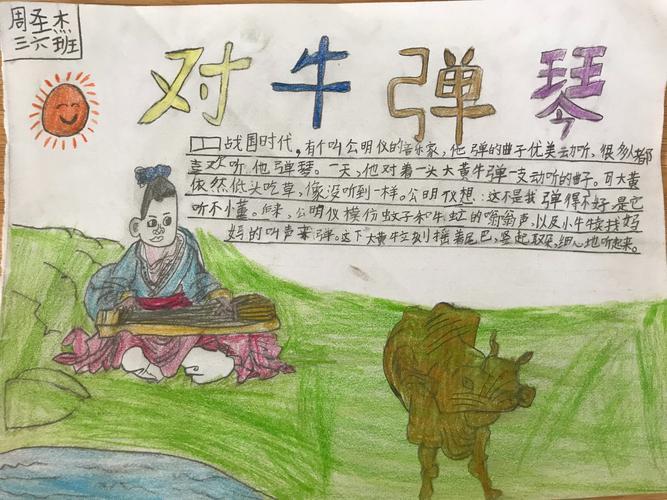 周圣杰
三六班
对牛弹琴
战国时代，有个叫公明仪的音乐家，他弹的曲子优美动听，很多人都
喜欢听他弹琴。一天，他对着一头大黄牛弹一支动听的曲子。可大黄
依然低头吃草，像没听到一样。公明仪想：这不是我弹得不好，是它
听不懂。后来，公明仪模仿蚊子和牛虻的嗡嗡声，以及小牛犊找妈
妈的叫声来弹。这下大黄牛立刻摇着尾巴，竖起耳朵，细心地听起来。